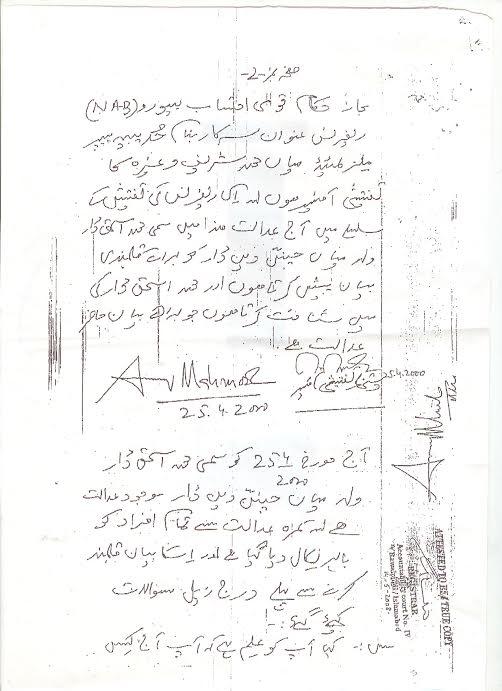 صفحہ نمبر -2-
مجاز حکام قومی احتساب بیورو (NAB)
ریفرنس عنوان سرکار بنام حدیبیہ پیپر
ملز لمیٹڈ میاں محمد شریف وغیرہ کا
تفتیشی آفیسر ہوں اور اس ریفرنس کی تفتیش کے
سلسلے میں آج عدالت ہذا میں مسمی محمد اسحق ڈار
ولد میاں چنن دین ڈار کو برائے قلمبندی
بیان پیش کرتا ہوں اور محمد اسحق ڈار کی
میں شناخت کرتا ہوں جو برائے بیان حاضر
عدالت ہے۔
تفتیشی آفیسر 25.4.2000
25.4.2000
آج مورخہ 25/4 کو مسمی محمد اسحق ڈار
2000
ولد میاں چنن دین ڈار موجود عدالت
ہے اور کمرہ عدالت سے تمام افراد کو
باہر نکال دیا گیا ہے اور اسکا بیان قلمبند
کرنے سے پہلے درج ذیل سوالات
کیئے گئے :-
س:- کیا آپ کو علم ہے کہ آپ آج کسی
ATTESTED TO BE TRUE COPY
REGISTRAR
Accountability court No. IV
Rawalpindi / Islamabad